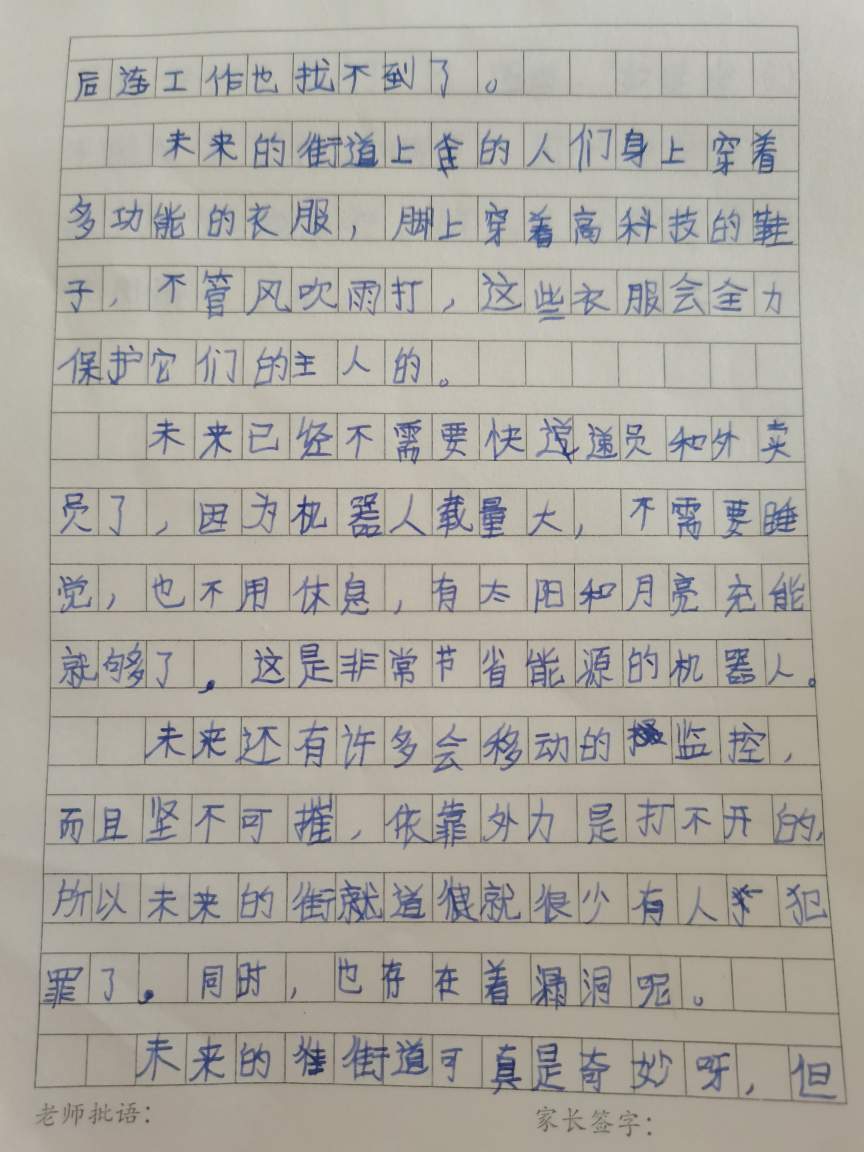 后连工作也找不到了。
未来的街道上的人们身上穿着
多功能的衣服，脚上穿着高科技的鞋
子，不管风吹雨打，这些衣服会全力
保护它们的主人的。
未来已经不需要快递员和外卖
员了，因为机器人载量大，不需要睡
觉，也不用休息，有太阳和月亮充能
就够了，这是非常节省能源的机器人。
未来还有许多会移动的监控，
而且坚不可摧，依靠外力是打不开的，
所以未来的街就道就很少有人犯
罪了。同时，也存在着漏洞呢。
未来的街道可真是奇妙呀，但
老师批语：
家长签字：